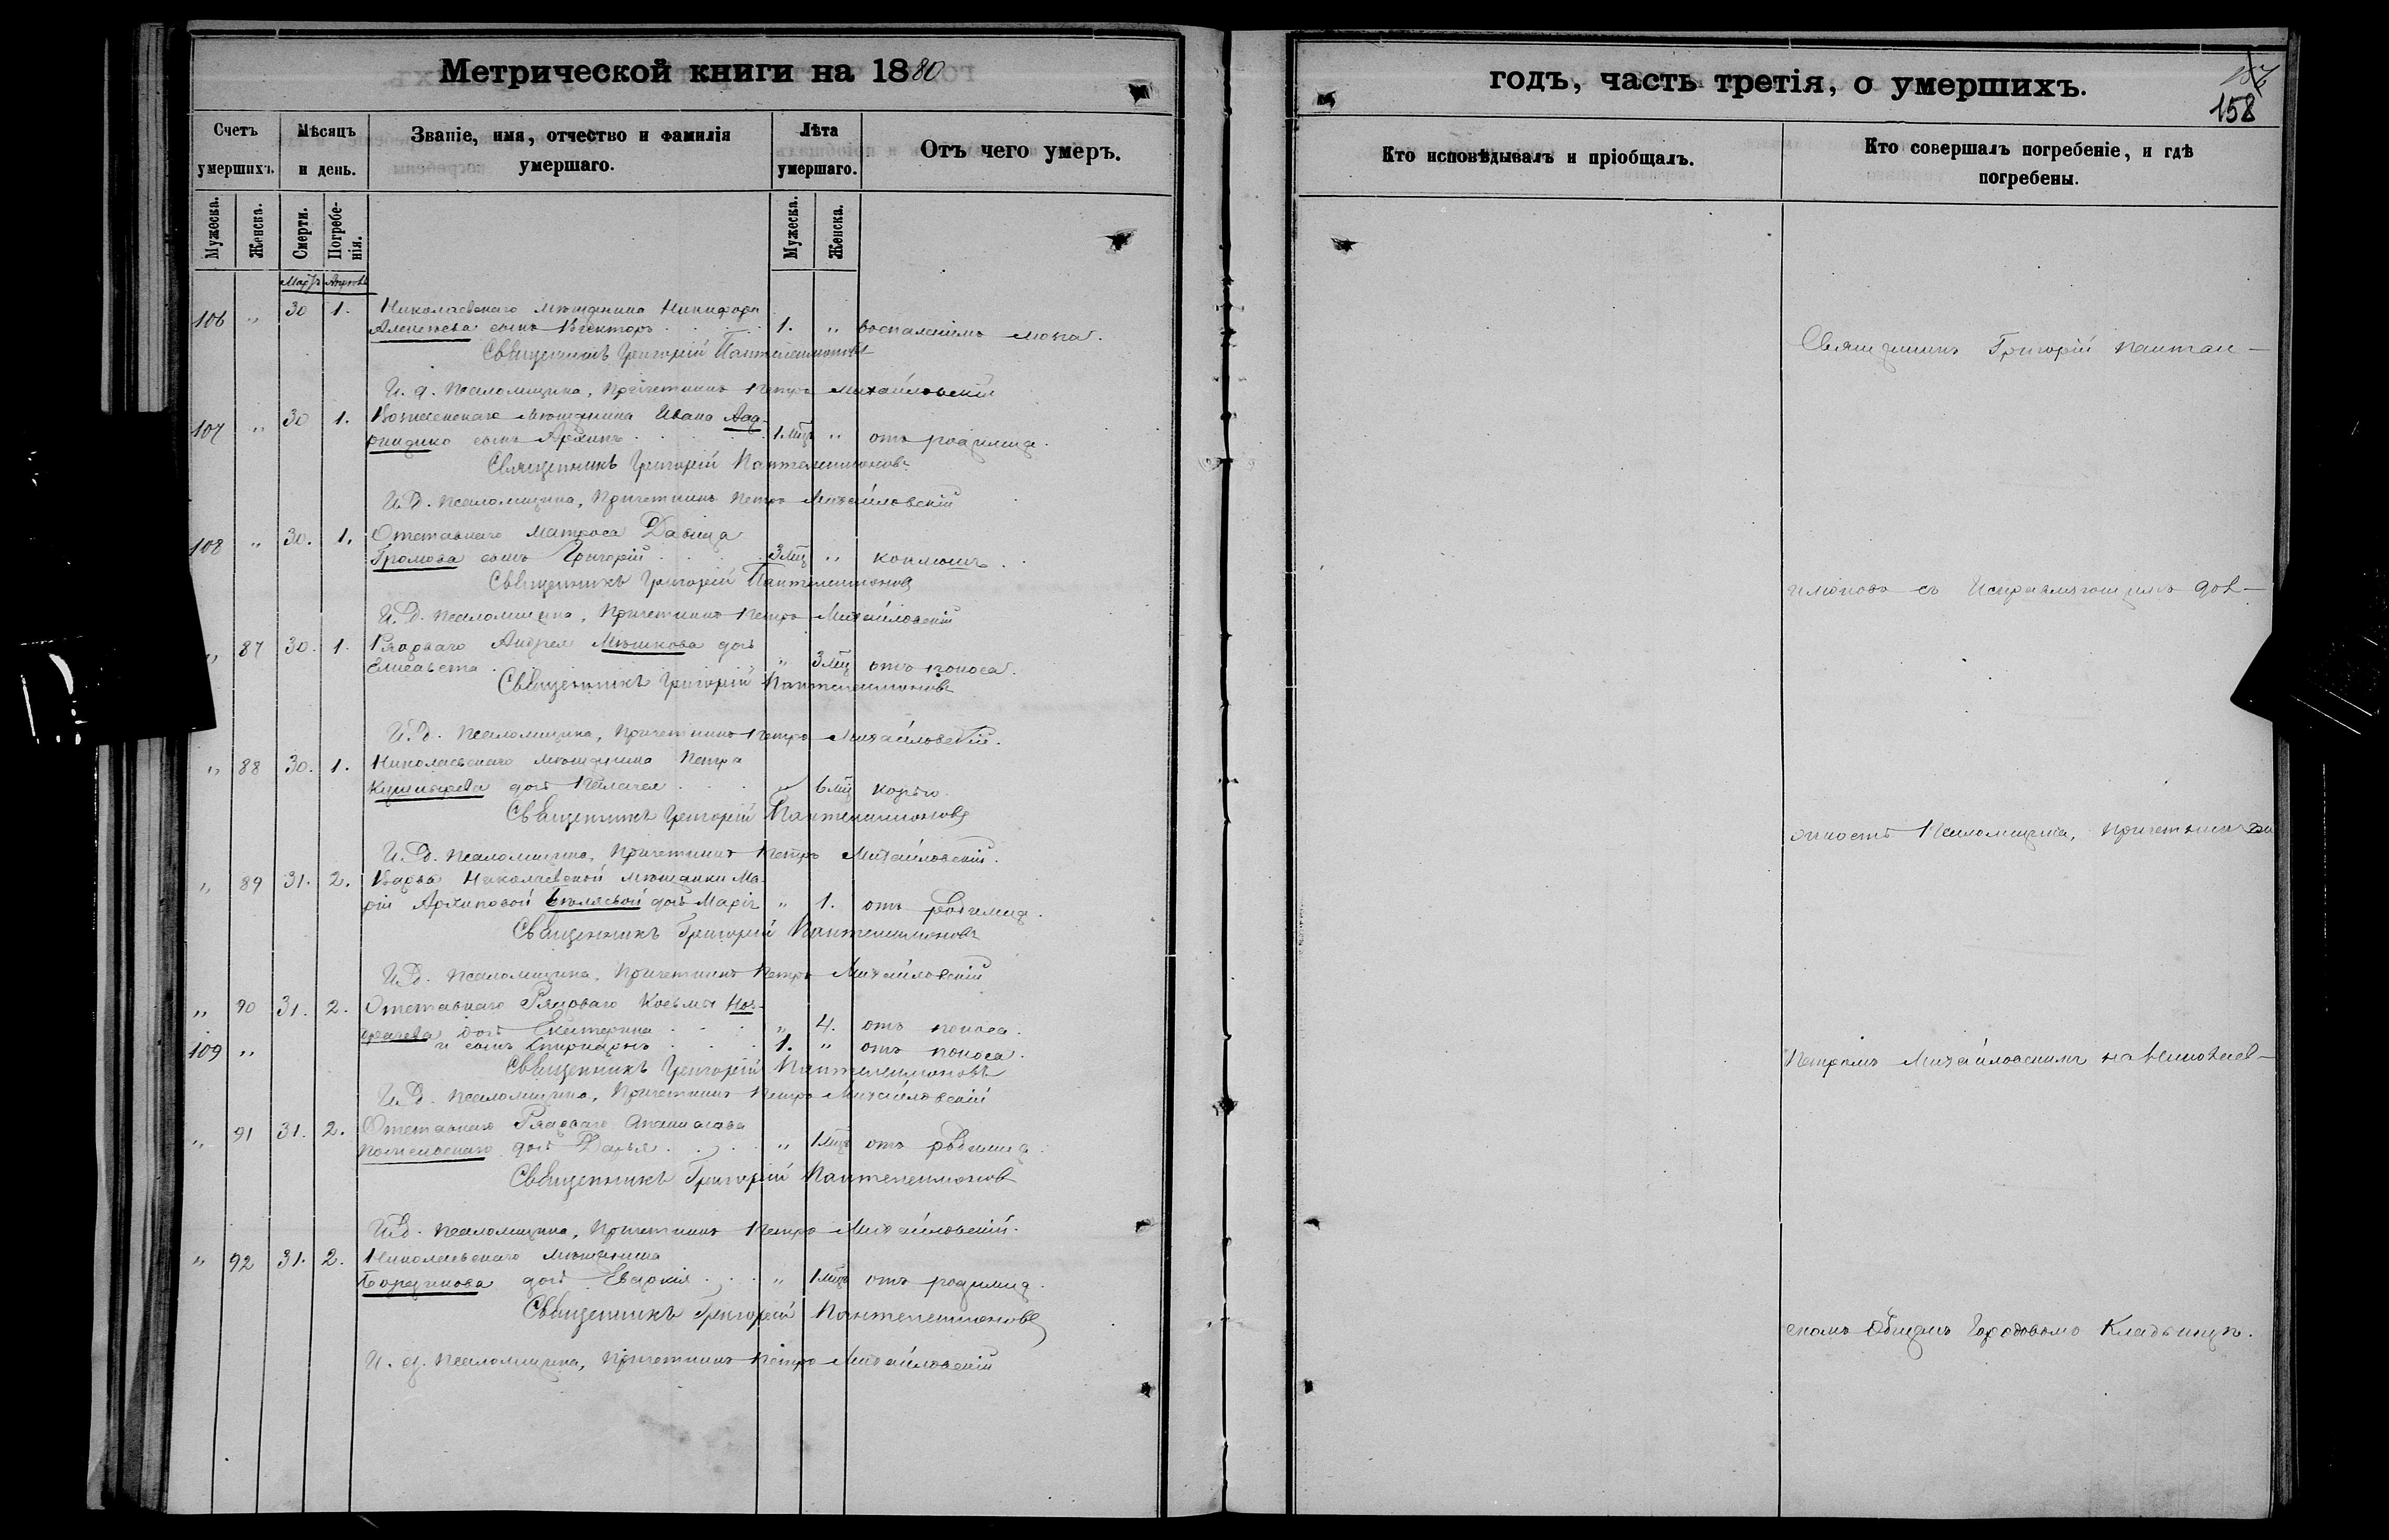 Метрической книги на 1880
Счетъ умершихъ.
Мѣсяцъ и день.
Званіе, имя, отчество и фамилія умершаго.
Лѣта умершаго.
Отъ чего умеръ.
Мужеска.
Женска.
Смерти.
Погребе-
нія.
Мужеска.
Женска.
Мартъ Апрѣль
106 „ 30 1. Николаевскаго мѣщанина Никифора
Алексѣева сынъ Викторъ 1. „ воспаленіемъ мозга.
Священникъ Григорій Пантелеимоновъ
И. д. Псаломщика, Причетникъ Петръ Михайловскій
107 „ 30 1. Вознесенскаго мѣщанина Ивана
сынъ Архипъ 1 мѣц „ отъ родимца.
Священникъ Григорій Пантелеимоновъ
И. Д. Псаломщика, Причетникъ Петръ Михайловскій
108 „ 30. 1. Отставнаго матроса Давида
Громова сынъ Григорій 3 мѣц „ коклюшъ.
Священникъ Григорій Пантелеимоновъ
И. Д. Псаломщика, Причетникъ Петръ Михайловскій
„ 87 30. 1. Рядоваго Андрея Мѣшкова дочь
Елисавета „ 3 мѣц отъ поноса.
Священникъ Григорій Пантелеимоновъ
И. Д. Псаломщика, Причетникъ Петръ Михайловскій.
„ 88 30. 1. Николаевскаго мѣщанина Петра
дочь Пелагея „ 6 мѣц корью.
Священникъ Григорій Пантелеимоновъ
И. Д. Псаломщика, Причетникъ Петръ Михайловскій.
„ 89 31. 2. Вдовы Николаевской мѣщанки Ма-
ріи Архиповой Бѣляевой дочь Марія „ 1. отъ родимца.
Священникъ Григорій Пантелеимоновъ
И. Д. Псаломщика, Причетникъ Петръ Михайловскій
„ 90 31. 2. Отставнаго Рядоваго Косьмы
дочь Екатерина „ 4. отъ поноса.
109 „ и сынъ 1. „ отъ поноса.
Священникъ Григорій Пантелеимоновъ
И. Д. Псаломщика, Причетникъ Петръ Михайловскій
„ 91 31. 2. Отставнаго Рядоваго
дочь Дарья „ 1 мѣц отъ родимца.
Священникъ Григорій Пантелеимоновъ
И. Д. Псаломщика, Причетникъ Петръ Михайловскій.
„ 92 31. 2. Николаевскаго мѣщанина
дочь Евдокія „ 1 мѣц отъ родимца.
Священникъ Григорій Пантелеимоновъ
И. д. Псаломщика, Причетникъ Петръ Михайловскій
годъ, часть третія, о умершихъ.
158
Кто исповѣдывалъ и пріобщалъ.
Кто совершалъ погребеніе, и гдѣ
погребены.
Священникъ Григорій Пантеле-
имоновъ съ Исправляющимъ дол-
жность Псаломщика, Причетникомъ
Петромъ Михайловскимъ на Николаев-
скомъ Общемъ Городовомъ Кладбищѣ.